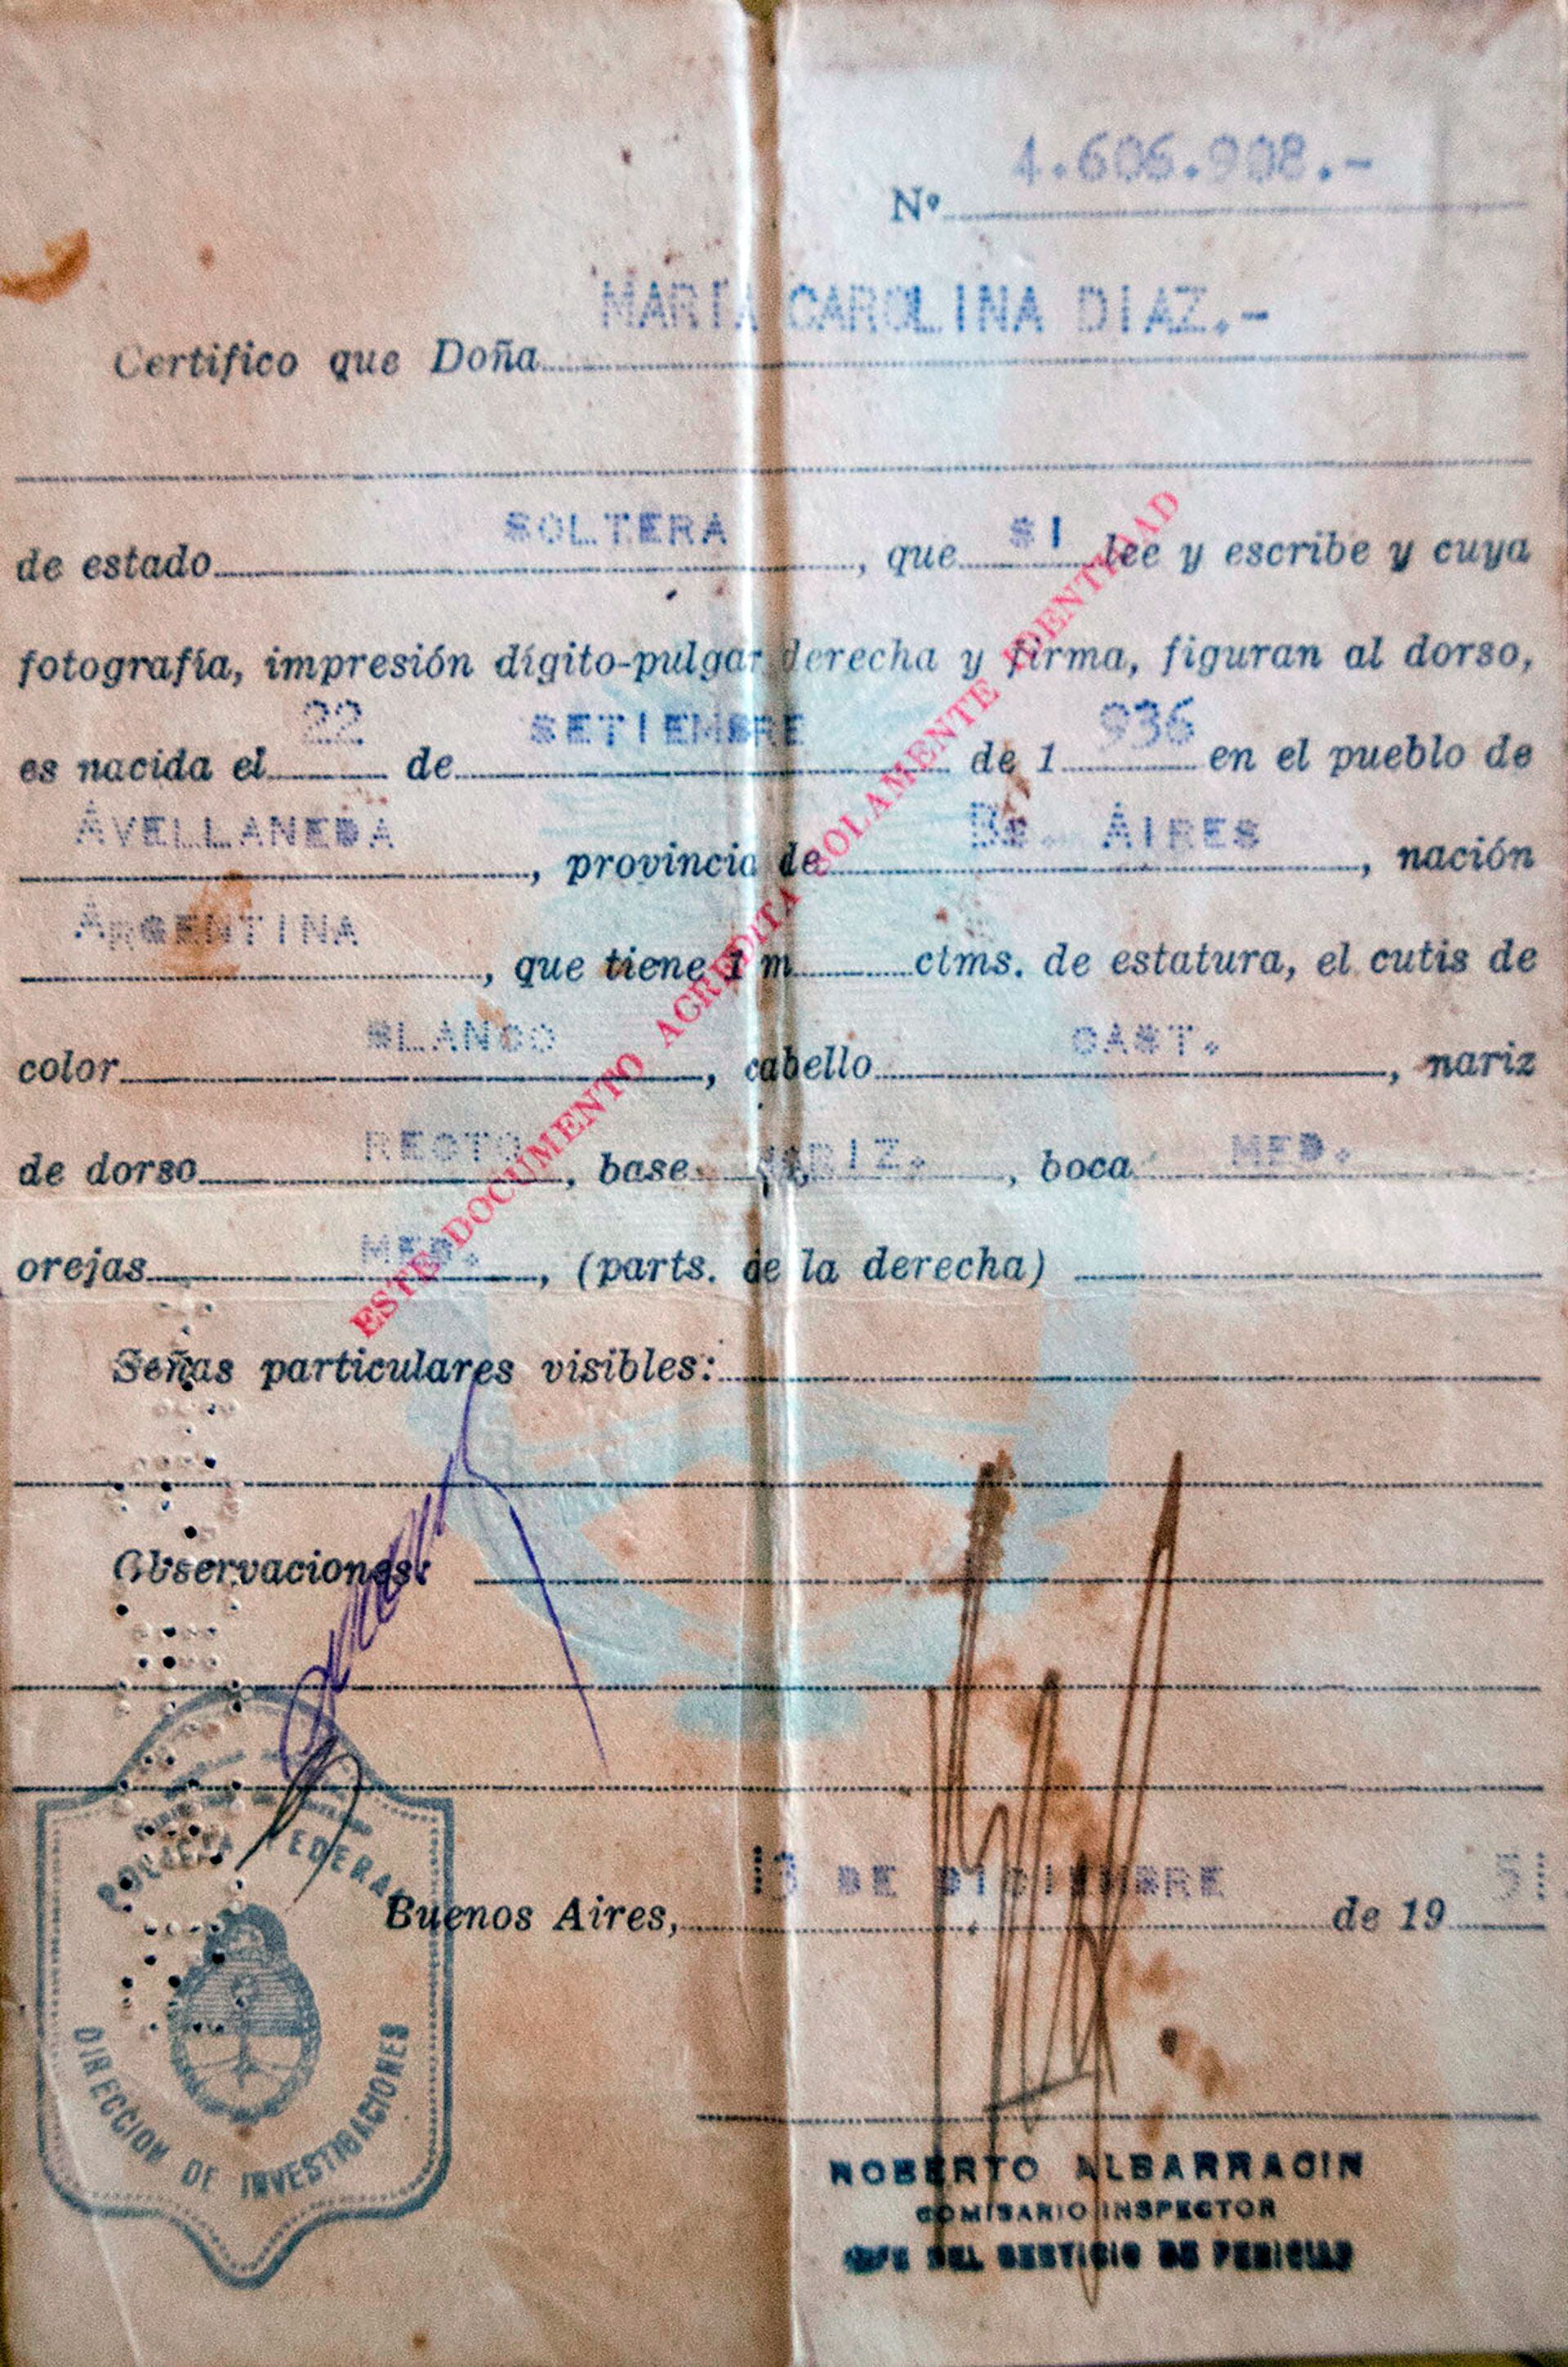 Nº 4.606.908.-
Certifico que Doña MARIA CAROLINA DIAZ.-
de estado SOLTERA, que SI lee y escribe y cuya
fotografía, impresión dígito-pulgar derecha y firma, figuran al dorso,
es nacida el 22 de SETIEMBRE de 1 936 en el pueblo de
AVELLANEDA, provincia de BS. AIRES, nación
ARGENTINA, que tiene 1 m ctms. de estatura, el cutis de
color BLANCO, cabello CAST., nariz
de dorso RECTO, base, boca MED.
orejas MED., (parts. de la derecha)
ESTE DOCUMENTO ACREDITA SOLAMENTE IDENTIDAD
Señas particulares visibles:
Observaciones:
Buenos Aires, 13 DE DICIEMBRE de 19 51
POLICIA FEDERAL
DIRECCION DE INVESTIGACIONES
ROBERTO ALBARRACIN
COMISARIO INSPECTOR
DEL DE